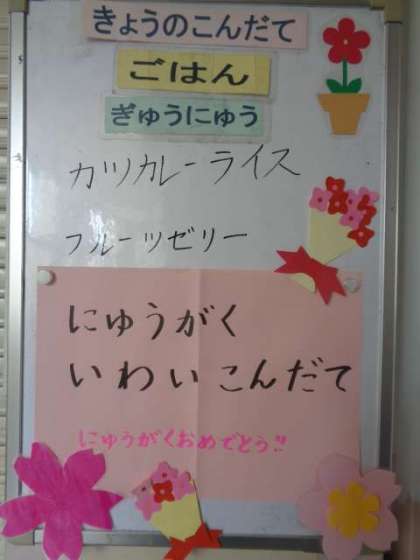 きょうのこんだて
ごはん
ぎゅうにゅう
カツカレーライス
フルーツゼリー
にゅうがく
いわいこんだて
にゅうがくおめでとう!!